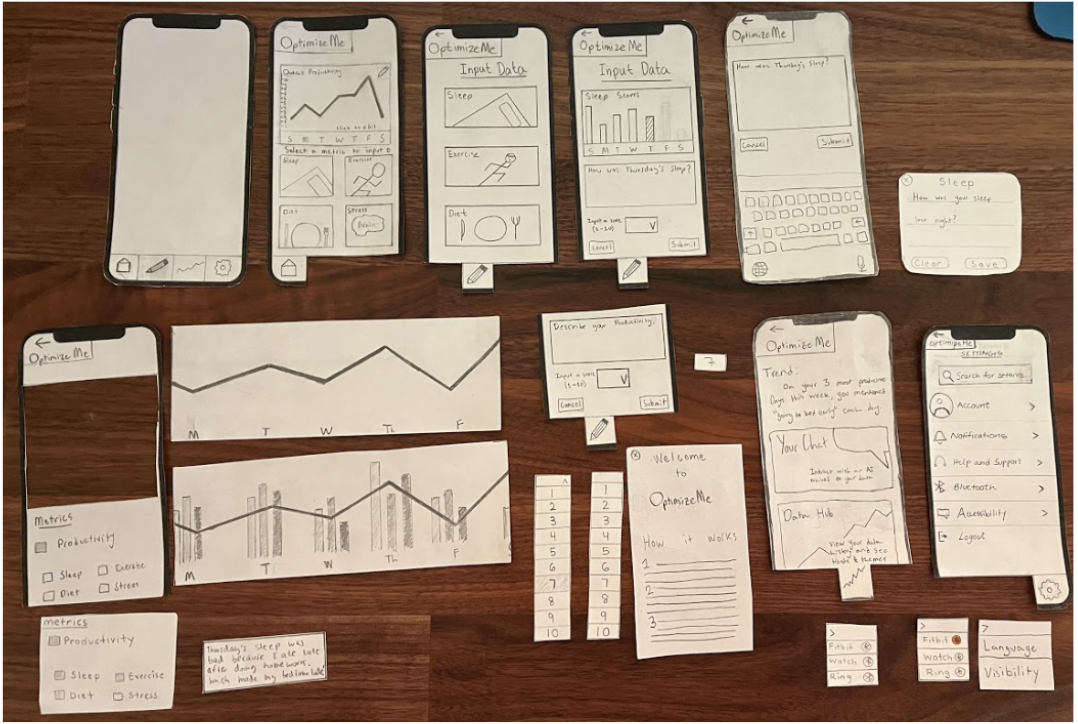 OptimizeMe
Productivity
click to edit
S M T W T F S
Select a metric to input
Sleep
Exercise
Diet
Stress
OptimizeMe
Input Data
Sleep
Exercise
Diet
OptimizeMe
Input Data
Sleep Scores
S M T W T F S
How was Thursday's Sleep?
Input a score
(1-10)
V
Cancel
Submit
OptimizeMe
How was Thursday's Sleep?
Cancel
Submit
Sleep
How was your sleep
last night?
Clear
Save
OptimizeMe
Metrics
Productivity
Sleep
Exercise
Diet
Stress
M T W Th F
M T W Th F
Describe your Productivity:
Input a score
(1-10)
V
Cancel
Submit
7
OptimizeMe
Trend:
On your 3 most productive
Days this week, you mentioned
"going to bed early" each day.
Your Chat
Interact with an AI
trained to your data
Data Hub
View your data
history and see
trends & themes
OptimizeMe
SETTINGS
Search for settings
Account >
Notifications >
Help and Support >
Bluetooth >
Accessibility >
Logout
1
2
3
4
5
6
7
8
9
10
1
2
3
4
5
6
7
8
9
10
Welcome
to
OptimizeMe
How it works
1
2
3
metrics
Productivity
Sleep
Exercise
Diet
Stress
Thursday's sleep was
bad because I ate late
after doing homework.
which made my bedtime late
>
Fitbit
Watch
Ring
>
Fitbit
Watch
Ring
>
Language
Visibility